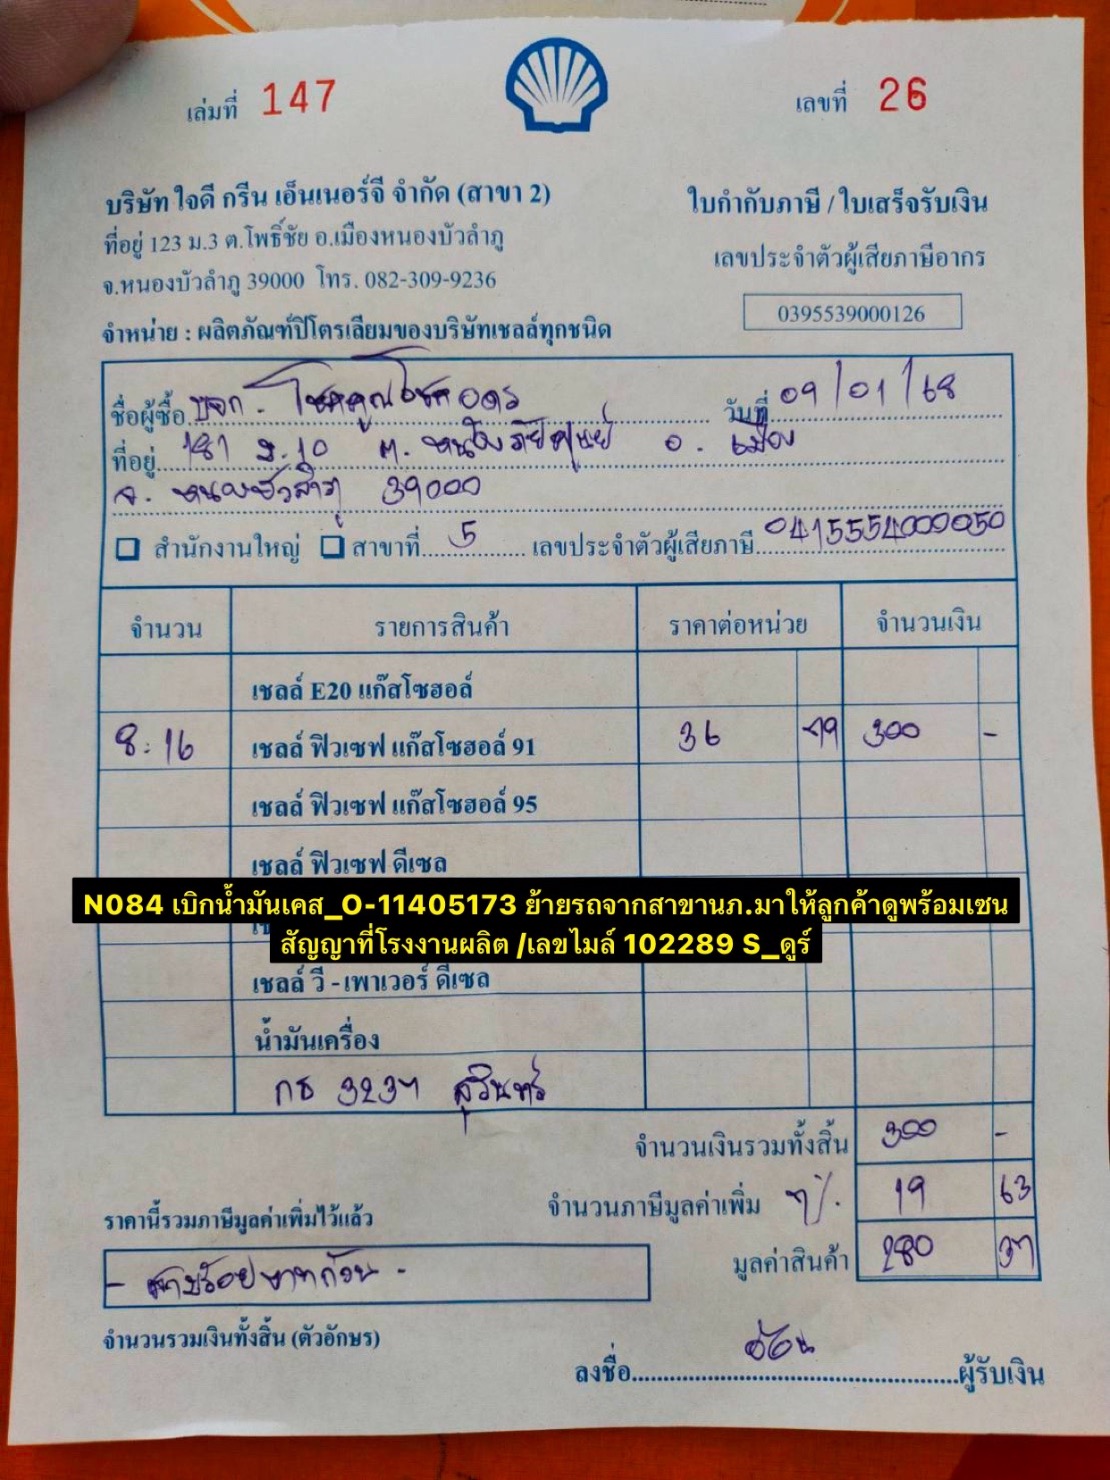 เล่มที่ 147
เลขที่ 26
บริษัท ใจดี กรีน เอ็นเนอร์จี จำกัด (สาขา 2)
ใบกำกับภาษี / ใบเสร็จรับเงิน
ที่อยู่ 123 ม.3 ต.โพธิ์ชัย อ.เมืองหนองบัวลำภู
เลขประจำตัวผู้เสียภาษีอากร
จ.หนองบัวลำภู 39000 โทร. 082-309-9236
0395539000126
จำหน่าย : ผลิตภัณฑ์ปิโตรเลียมของบริษัทเชลล์ทุกชนิด
ชื่อผู้ซื้อ บจก. โชคคูณโชคอุดร วันที่ 09/01/68
ที่อยู่ 181 ม.10 ต. หนองภัยศูนย์ อ. เมือง
จ. หนองบัวลำภู 39000
สำนักงานใหญ่ สาขาที่ 5 เลขประจำตัวผู้เสียภาษี 0415554000050
จำนวน รายการสินค้า ราคาต่อหน่วย จำนวนเงิน
เชลล์ E20 แก๊สโซฮอล์
8.16 เชลล์ ฟิวเซฟ แก๊สโซฮอล์ 91 36 79 300 -
เชลล์ ฟิวเซฟ แก๊สโซฮอล์ 95
เชลล์ ฟิวเซฟ ดีเซล
N084 เบิกน้ำมันเคส_O-11405173 ย้ายรถจากสาขานภ.มาให้ลูกค้าดูพร้อมเซน
สัญญาที่โรงงานผลิต /เลขไมล์ 102289 S_ดูร์
เชลล์ วี - เพาเวอร์ ดีเซล
น้ำมันเครื่อง
กธ 3237 สุรินทร์
จำนวนเงินรวมทั้งสิ้น 300 -
จำนวนภาษีมูลค่าเพิ่ม 7%. 19 63
ราคานี้รวมภาษีมูลค่าเพิ่มไว้แล้ว
มูลค่าสินค้า 280 37
- สามร้อยบาทถ้วน -
จำนวนรวมเงินทั้งสิ้น (ตัวอักษร)
ลงชื่อ ผู้รับเงิน